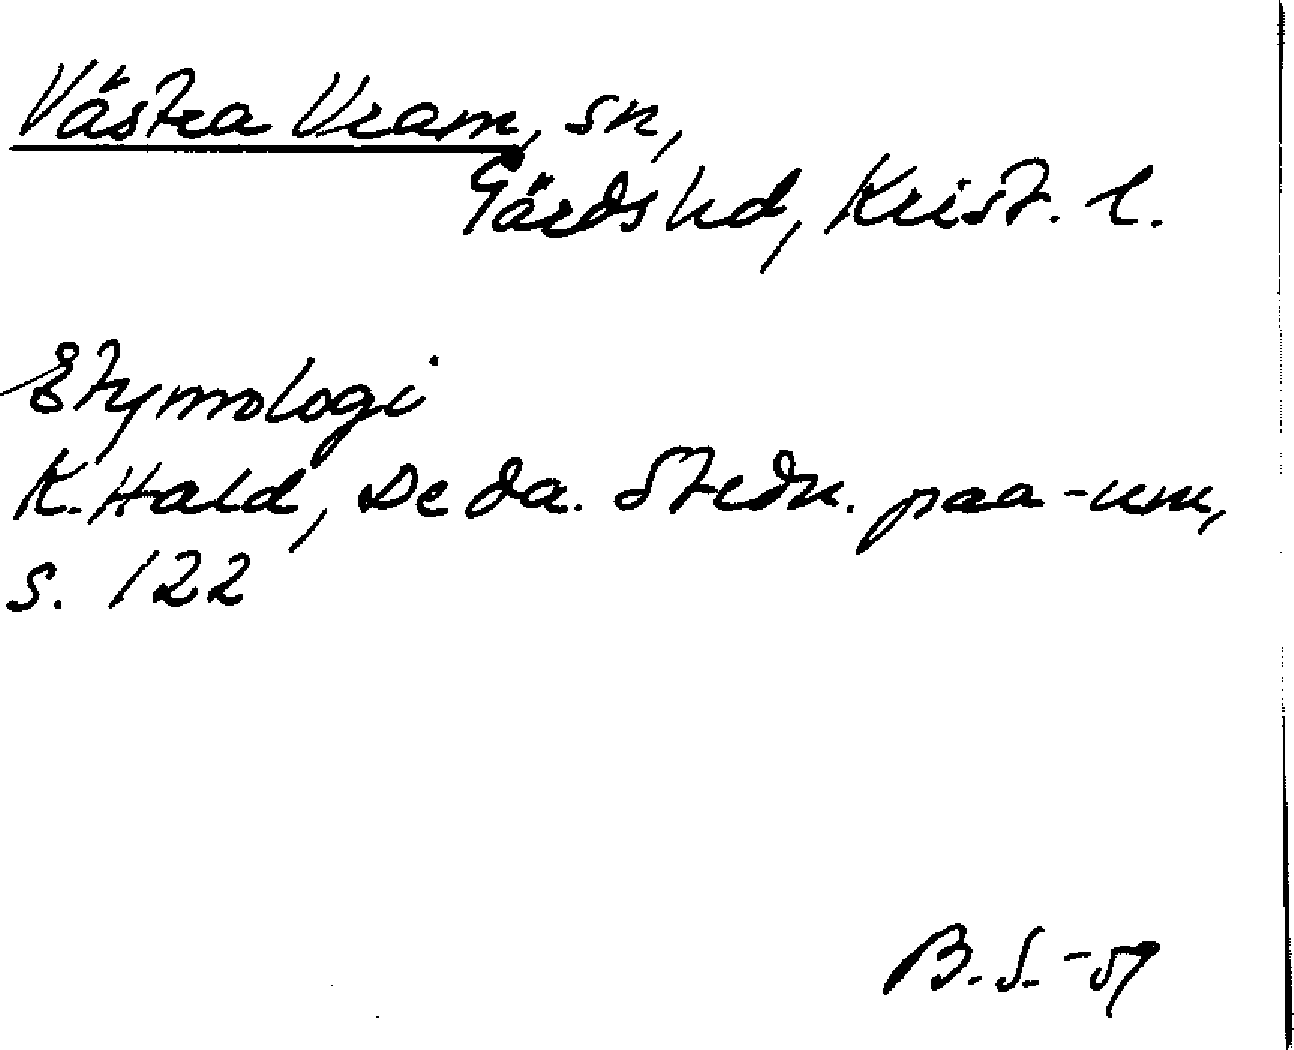 Västra Vram, sn,
Gärds hd, Krist. l.
Etymologi
K. Hald, De da. Stedn. paa -um,
s. 122
B. S. -59